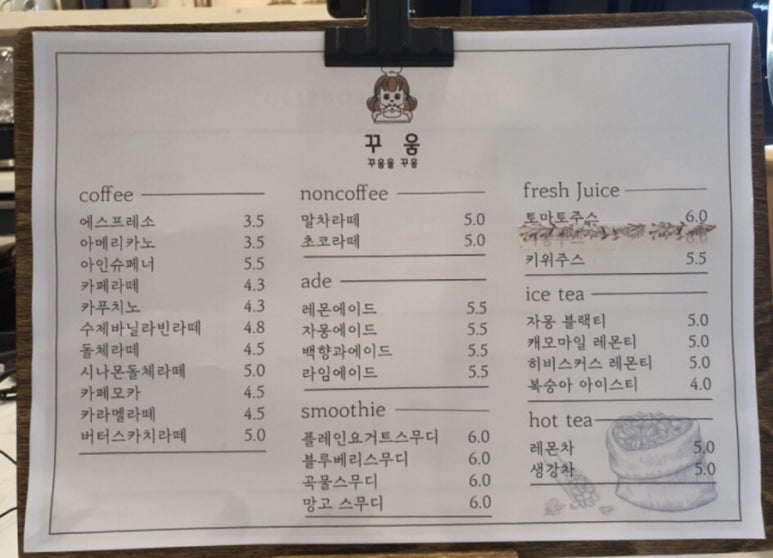 꾸 움
꾸움을 꾸움
coffee
에스프레소 3.5
아메리카노 3.5
아인슈페너 5.5
카페라떼 4.3
카푸치노 4.3
수제바닐라빈라떼 4.8
돌체라떼 4.5
시나몬돌체라떼 5.0
카페모카 4.5
카라멜라떼 4.5
버터스카치라떼 5.0
noncoffee
말차라떼 5.0
초코라떼 5.0
ade
레몬에이드 5.5
자몽에이드 5.5
백향과에이드 5.5
라임에이드 5.5
smoothie
플레인요거트스무디 6.0
블루베리스무디 6.0
곡물스무디 6.0
망고 스무디 6.0
fresh Juice
토마토주스 6.0
키위주스 5.5
ice tea
자몽 블랙티 5.0
캐모마일 레몬티 5.0
히비스커스 레몬티 5.0
복숭아 아이스티 4.0
hot tea
레몬차 5.0
생강차 5.0